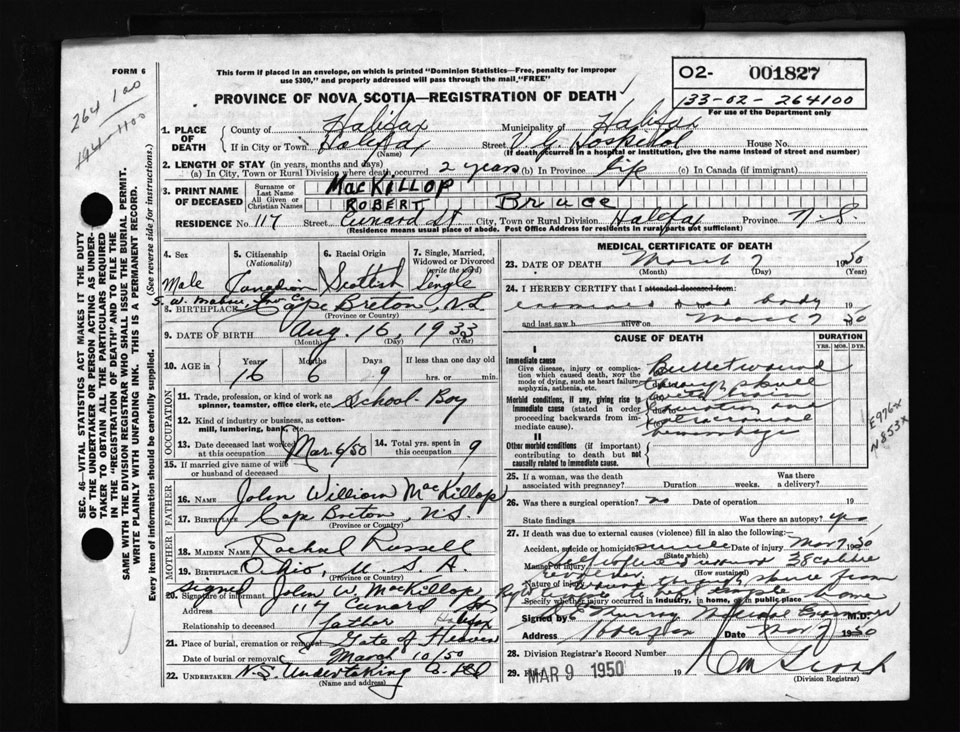 FORM 6
264 100
This form if placed in an envelope, on which is printed "Dominion Statistics—Free, penalty for improper
use $300," and properly addressed will pass through the mail, "FREE"
PROVINCE OF NOVA SCOTIA—REGISTRATION OF DEATH
02- 001827
133-02-264100
For use of the Department only
1. PLACE OF DEATH County of Halifax Municipality of Halifax
If in City or Town Halifax (Name) Street V.G. Hospital House No.
(If death occurred in a hospital or institution, give the name instead of street and number)
2. LENGTH OF STAY (in years, months and days)
(a) In City, Town or Rural Division where death occurred 2 years (b) In Province life (c) In Canada (if immigrant)
3. PRINT NAME OF DECEASED Surname or Last Name MacKillop
All Given or Christian Names ROBERT Bruce
RESIDENCE No. 117 Street Cunard St City, Town or Rural Division Halifax Province N-S
(Residence means usual place of abode. Post Office Address for residents in rural parts not sufficient)
4. Sex Male
5. Citizenship (Nationality) Canadian
6. Racial Origin Scottish
7. Single, Married, Widowed or Divorced (write the word) Single
8. BIRTHPLACE Cape Breton, N.S.
(Province or Country)
9. DATE OF BIRTH Aug. 16, 1933
(Month) (Day) (Year)
10. AGE in Years 16 Months 6 Days 9 If less than one day old hrs. or min.
OCCUPATION
11. Trade, profession, or kind of work as spinner, teamster, office clerk, etc. School Boy
12. Kind of industry or business, as cotton-mill, lumbering, bank, etc.
13. Date deceased last worked at this occupation Mar 6/50
14. Total yrs. spent in this occupation 9
15. If married give name of wife or husband of deceased
FATHER
16. NAME John William MacKillop
17. BIRTHPLACE Cape Breton, N.S.
(Province or Country)
MOTHER
18. MAIDEN NAME Rachel Russell
19. BIRTHPLACE Ohio, U.S.A.
(Province or Country)
20. Signature of informant Signed John W. MacKillop,
Address 117 Cunard St
Halifax
Relationship to deceased father
21. Place of burial, cremation or removal Gate of Heaven
Date of burial or removal March 10/50
22. UNDERTAKER N.S. Undertaking Co. Ltd
(Name and address)
MEDICAL CERTIFICATE OF DEATH
23. DATE OF DEATH March 7 1950
(Month) (Day) (Year)
24. I HEREBY CERTIFY that I attended deceased from:
examined dead body 19
and last saw h alive on March 7 1950
CAUSE OF DEATH
DURATION
YRS. MOS. DYS.
I
Immediate cause
Give disease, injury or complication which caused death, NOT the mode of dying, such as heart failure, asphyxia, asthenia, etc.
Morbid conditions, if any, giving rise to immediate cause (stated in order proceeding backwards from immediate cause).
II
Other morbid conditions (if important) contributing to death but not causally related to immediate cause.
Bullet wound
through skull
with brain
laceration and
hemorrhage
E976X
N853X
25. If a woman, was the death associated with pregnancy? Duration weeks. Was there a delivery?
26. Was there a surgical operation? no Date of operation 19
State findings Was there an autopsy? yes
27. If death was due to external causes (violence) fill in also the following:
Accident, suicide or homicide suicide Date of injury Mar 7 1950
(State which)
Manner of injury Self inflicted wound 38 calibre
(How sustained)
revolver
Nature of injury wound through from
Right temple to left temple home
Specify whether injury occurred in industry, in home, or in public place
Signed by Medical Examiner M.D.
Address Date Mar 7 1950
28. Division Registrar's Record Number
29. Filed MAR 9 1950 19
(Division Registrar)
SEC. 46—VITAL STATISTICS ACT MAKES IT THE DUTY
OF THE UNDERTAKER OR PERSON ACTING AS UNDER-
TAKER TO OBTAIN ALL THE PARTICULARS REQUIRED
IN THE "REGISTRATION OF DEATH" AND TO FILE THE
SAME WITH THE DIVISION REGISTRAR WHO SHALL ISSUE THE BURIAL PERMIT.
WRITE PLAINLY WITH UNFADING INK. THIS IS A PERMANENT RECORD.
Every item of information should be carefully supplied. (See reverse side for instructions.)